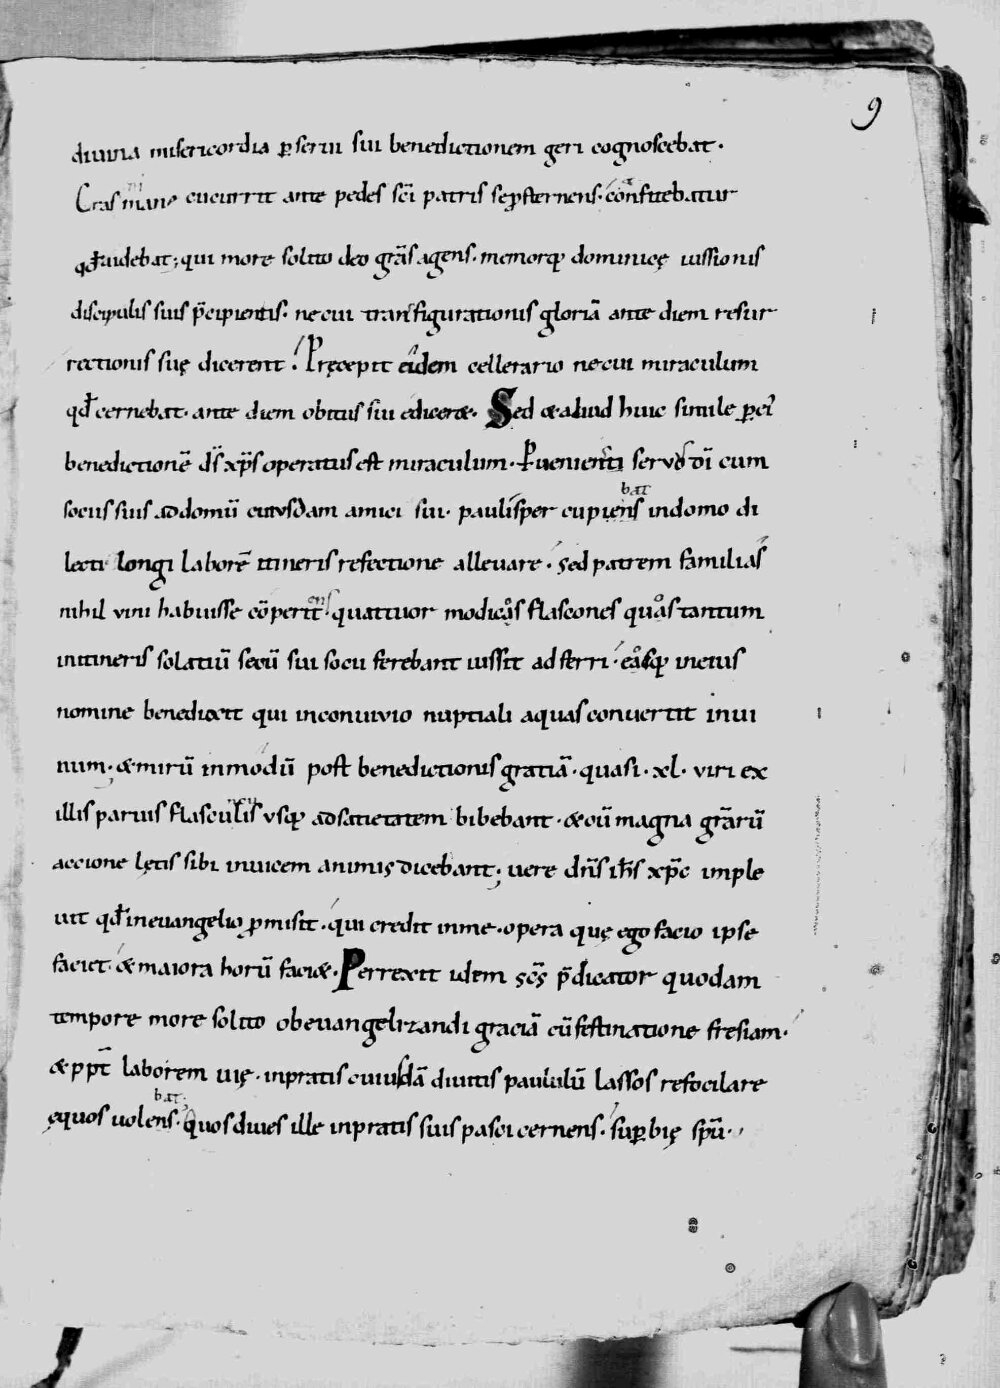 9
diuina misericordia ꝑ serui sui benedictionem geri cognoscebat.
Cras mane cucurrit ante pedes sc̄i patris se ꝓsternens. confitebatur
qđ uidebat; qui more solito deo grās agens. memorq; dominicę iussionis
discipulis suis p̄cipientis. ne cui transfigurationis gloriā ante diem resur
rectionis suę dicerent. Pręcepit eidem cellerario ne cui miraculum
qđ cernebat. ante diem obitus sui ediceret. Sed & aliud huic simile ꝑ ei
benedictionē ds̄ xp̄s operatus est miraculum. Peruenienti seruo dī cum
sociis suis ad domū cuiusdam amici sui. paulisper cupiens indomo di
bat
lecti longi laborē itineris refectione alleuare. sed patrem familias
nihil uini habuisse cōperit. quattuor modicos flascones quos tantum
ens
in itineris solatiū secū sui socii ferebant iussit adferri. eosq; in eius
nomine benedixit qui in conuiuio nuptiali aquas conuertit in ui
num; & mirū inmodū post benedictionis gratiā. quasi. xl. uiri ex
illis paruis flasculis usq; ad satietatem bibebant. & cū magna grārū
accione lętis sibi inuicem animis dicebant; uere dn̄s ih̄s xp̄c imple
uit qđ in euangelio ꝓmisit. qui credit in me. opera quę ego facio ipse
faciet. & maiora horū faciet. Perrexit idem sc̄s p̄dicator quodam
tempore more solito ob euangelizandi graciā cū festinatione fresiam.
& ppt̄ laborem uię. in pratis cuiusdā diuitis paululū lassos refocilare
bat;
ęquos uolens. Quos diues ille in pratis suis pasci cernens. suꝑbię spū.